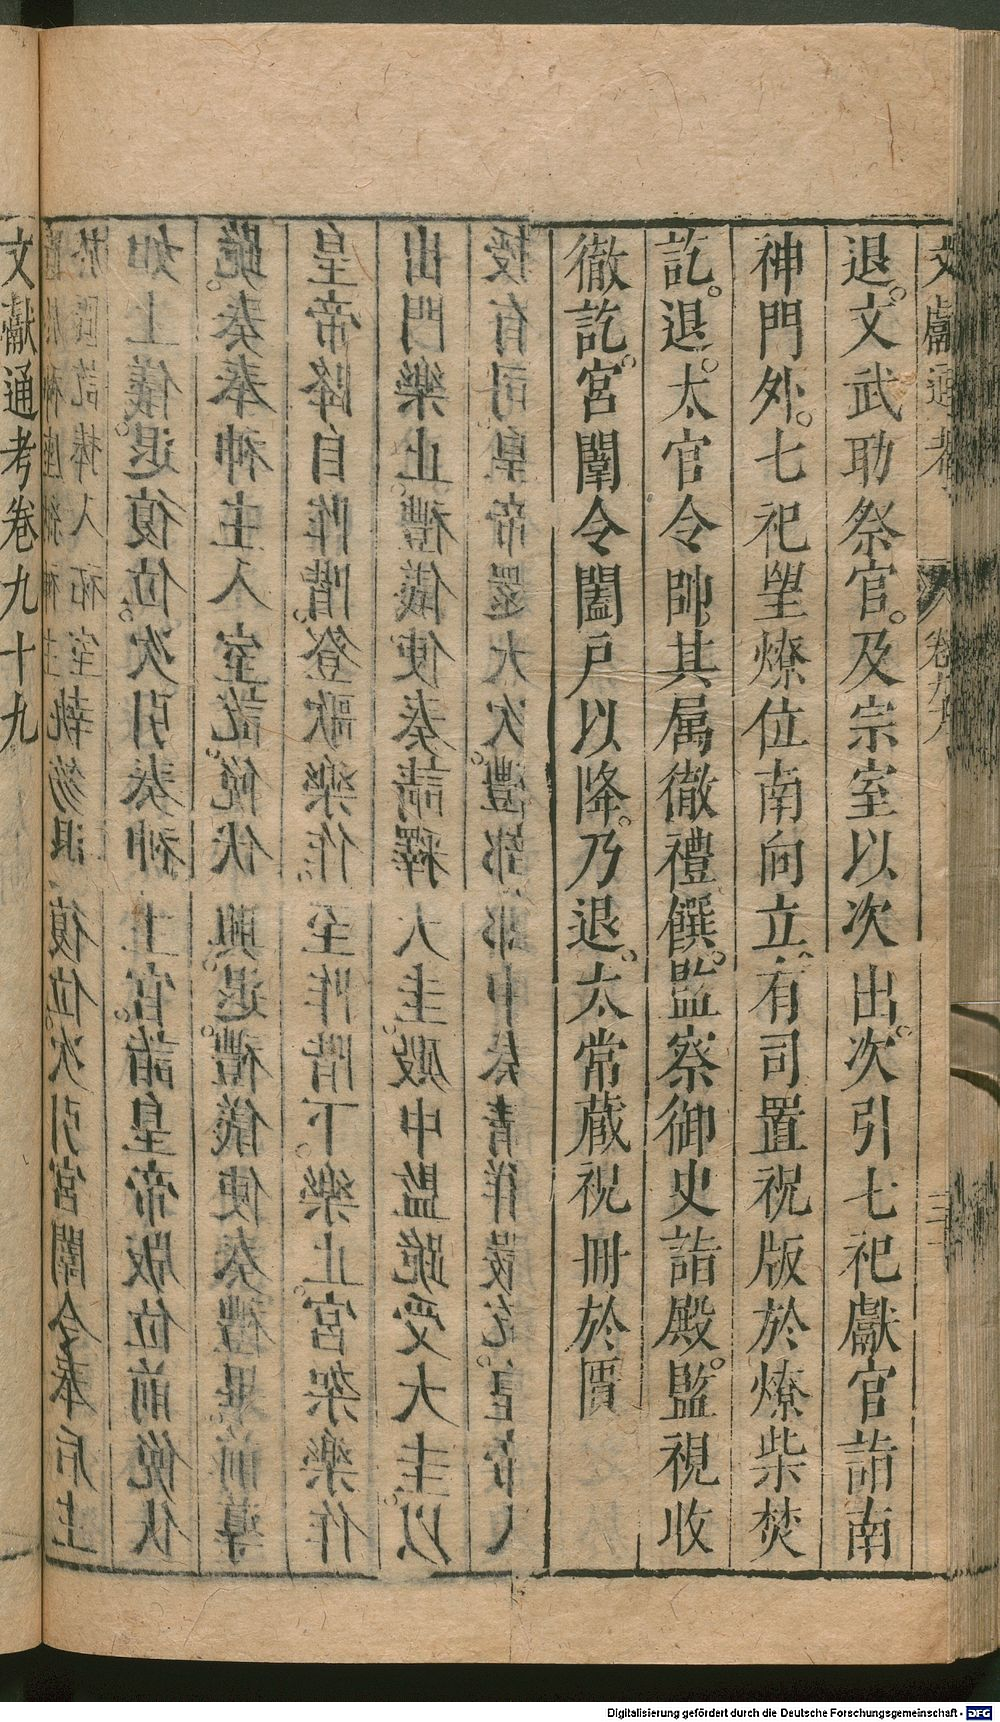 文獻通考 卷九十九
退。文武助祭官。及宗室以次出。次引七祀獻官詣南
神門外。七祀望燎位南向立。有司置祝版於燎柴焚
訖。退。太官令帥其属徹禮饌。監察御史詣殿。監視收
徹訖。宮闈令闔戶以降。乃退。太常蔵祝冊於匱
授有司皇帝還大次。禮部郎中奏請解嚴訖。皇帝入
出門樂止。禮儀使奏請釋大圭。殿中監跪受大圭。以
皇帝降自阼階。登歌樂作。至阼階下。樂止。宮架樂作
跪。奏奉神主入室訖。俛伏興退。禮儀使奏禮畢。前導
如上儀。退復位。次引奏神主官。詣皇帝版位前俛伏
於匱訖捧入祏室執笏退復位。次引宮闈令奉后主
文獻通考卷九十九
Digitalisierung gefördert durch die Deutsche Forschungsgemeinschaft - DFG